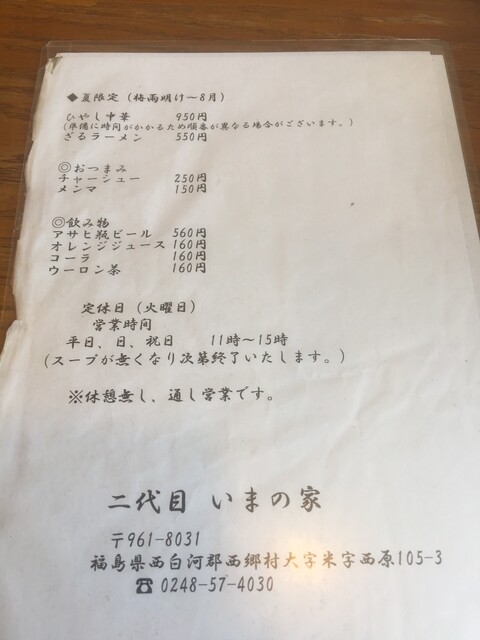 ◆夏限定（梅雨明け～8月）
ひやし中華 950円
（準備に時間がかかるため順番が異なる場合がございます。）
ざるラーメン 550円
◎おつまみ
チャーシュー 250円
メンマ 150円
◎飲み物
アサヒ瓶ビール 560円
オレンジジュース 160円
コーラ 160円
ウーロン茶 160円
定休日（火曜日）
営業時間
平日、日、祝日 11時～15時
（スープが無くなり次第終了いたします。）
※休憩無し、通し営業です。
二代目 いまの家
〒961-8031
福島県西白河郡西郷村大字米字西原105-3
☎0248-57-4030